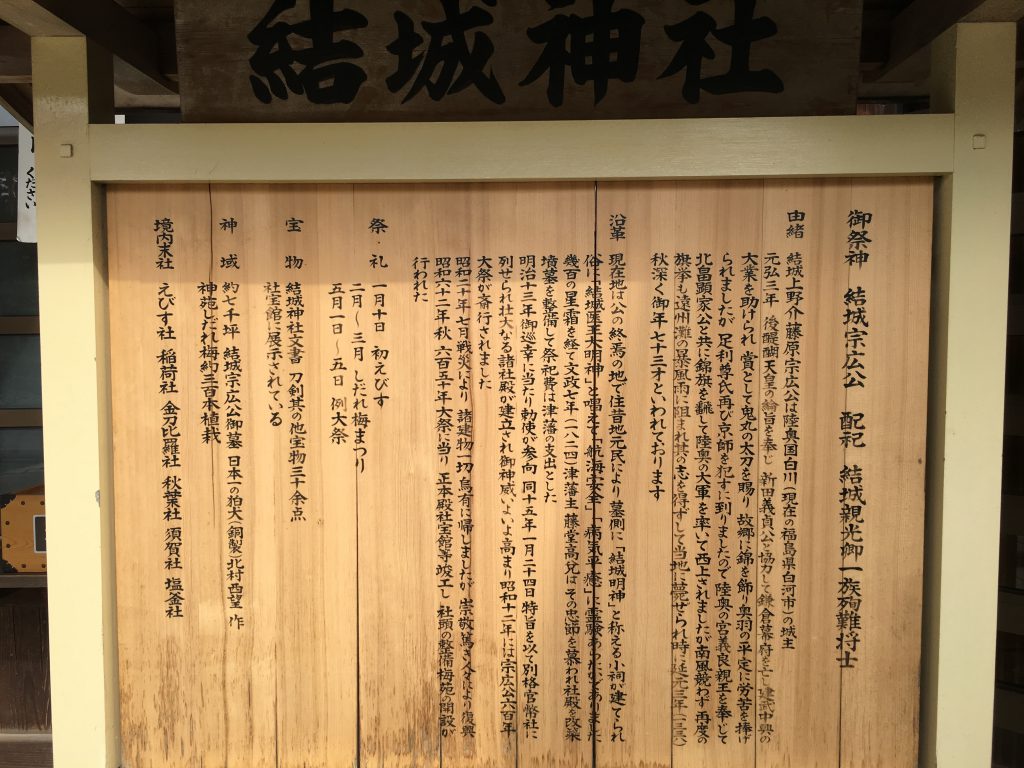 結城神社
ください
御祭神 結城宗広公 配祀 結城親光卿一族殉難将士
由緒 結城上野介藤原宗広公は陸奥国白川(現在の福島県白河市)の城主
元弘三年 後醍醐天皇の綸旨を奉じ 新田義貞公と協力して鎌倉幕府を亡し建武中興の
大業を助けられ 賞として鬼丸の太刀を賜り 故郷に錦を飾り奥羽の平定に労苦を捧げ
られましたが 足利尊氏再び京師を犯すに到りましたので陸奥の宮義良親王を奉じて
北畠顕家公と共に錦旗を飜して陸奥の大軍を率いて西上されましたが南風競わず 再度の
旗挙も遠州灘の暴風雨に阻まれ其の志を得ずして当地に薨ぜられ時に延元三年(一三三八)
秋深く御年七十三才といわれております
沿革 現在地は公の終焉の地で往昔地元民により墓側に「結城明神」と称える小祠が建てられ
俗に「結城医王大明神」と唱えて「航海安全」「病気平癒」に霊験あらたかでありました
幾百の星霜を経て文政七年(一八二四)津藩主 藤堂高兌はその忠節を慕われ社殿を改築
墳墓を整備して祭祀費は津藩の支出とした
明治十三年御巡幸に当たり勅使が参向 同十五年一月二十四日特旨を以て別格官幣社に
列せられ壮大なる諸社殿が建立され御神威いよいよ高まり昭和十二年には宗広公六百年
大祭が斎行されました
昭和二十年七月戦災により 諸建物一切烏有に帰しましたが 崇敬篤き人々により復興
昭和六十二年秋 六百五十年大祭に当り 正本殿社宝館等竣工し 社頭の整備梅苑の開設が
行われた
祭・礼 一月十日 初えびす
二月〜三月 しだれ梅まつり
五月一日〜五日 例大祭
宝物 結城神社文書 刀剣其の他宝物三十余点
社宝館に展示されている
神域 約七千坪 結城宗広公御墓 日本一の狛犬(銅製)北村西望 作
神苑しだれ梅約三百本植栽
境内末社 えびす社 稲荷社 金刀比羅社 秋葉社 須賀社 塩釜社